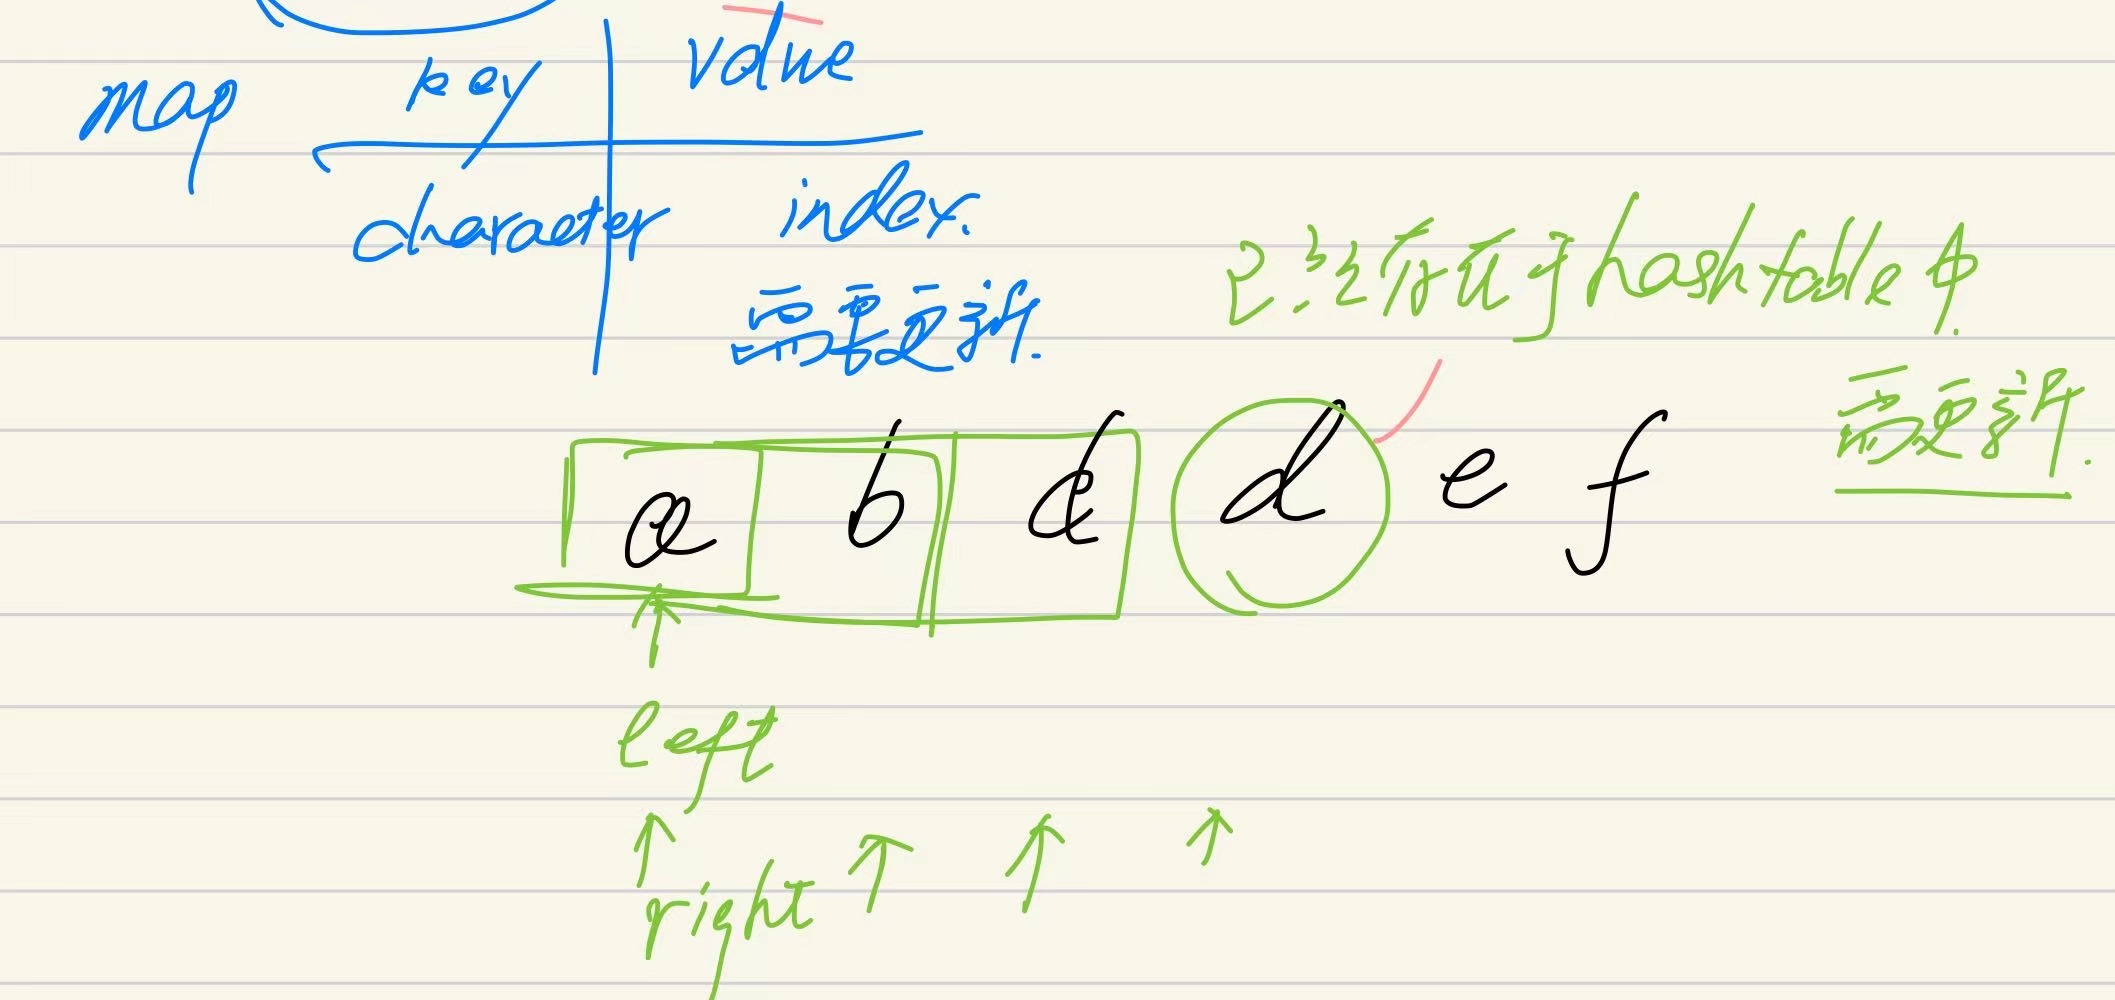 map key value
character index.
需要更新.
已经存在于hashtable中.
需更新.
a b d d e f
left
right